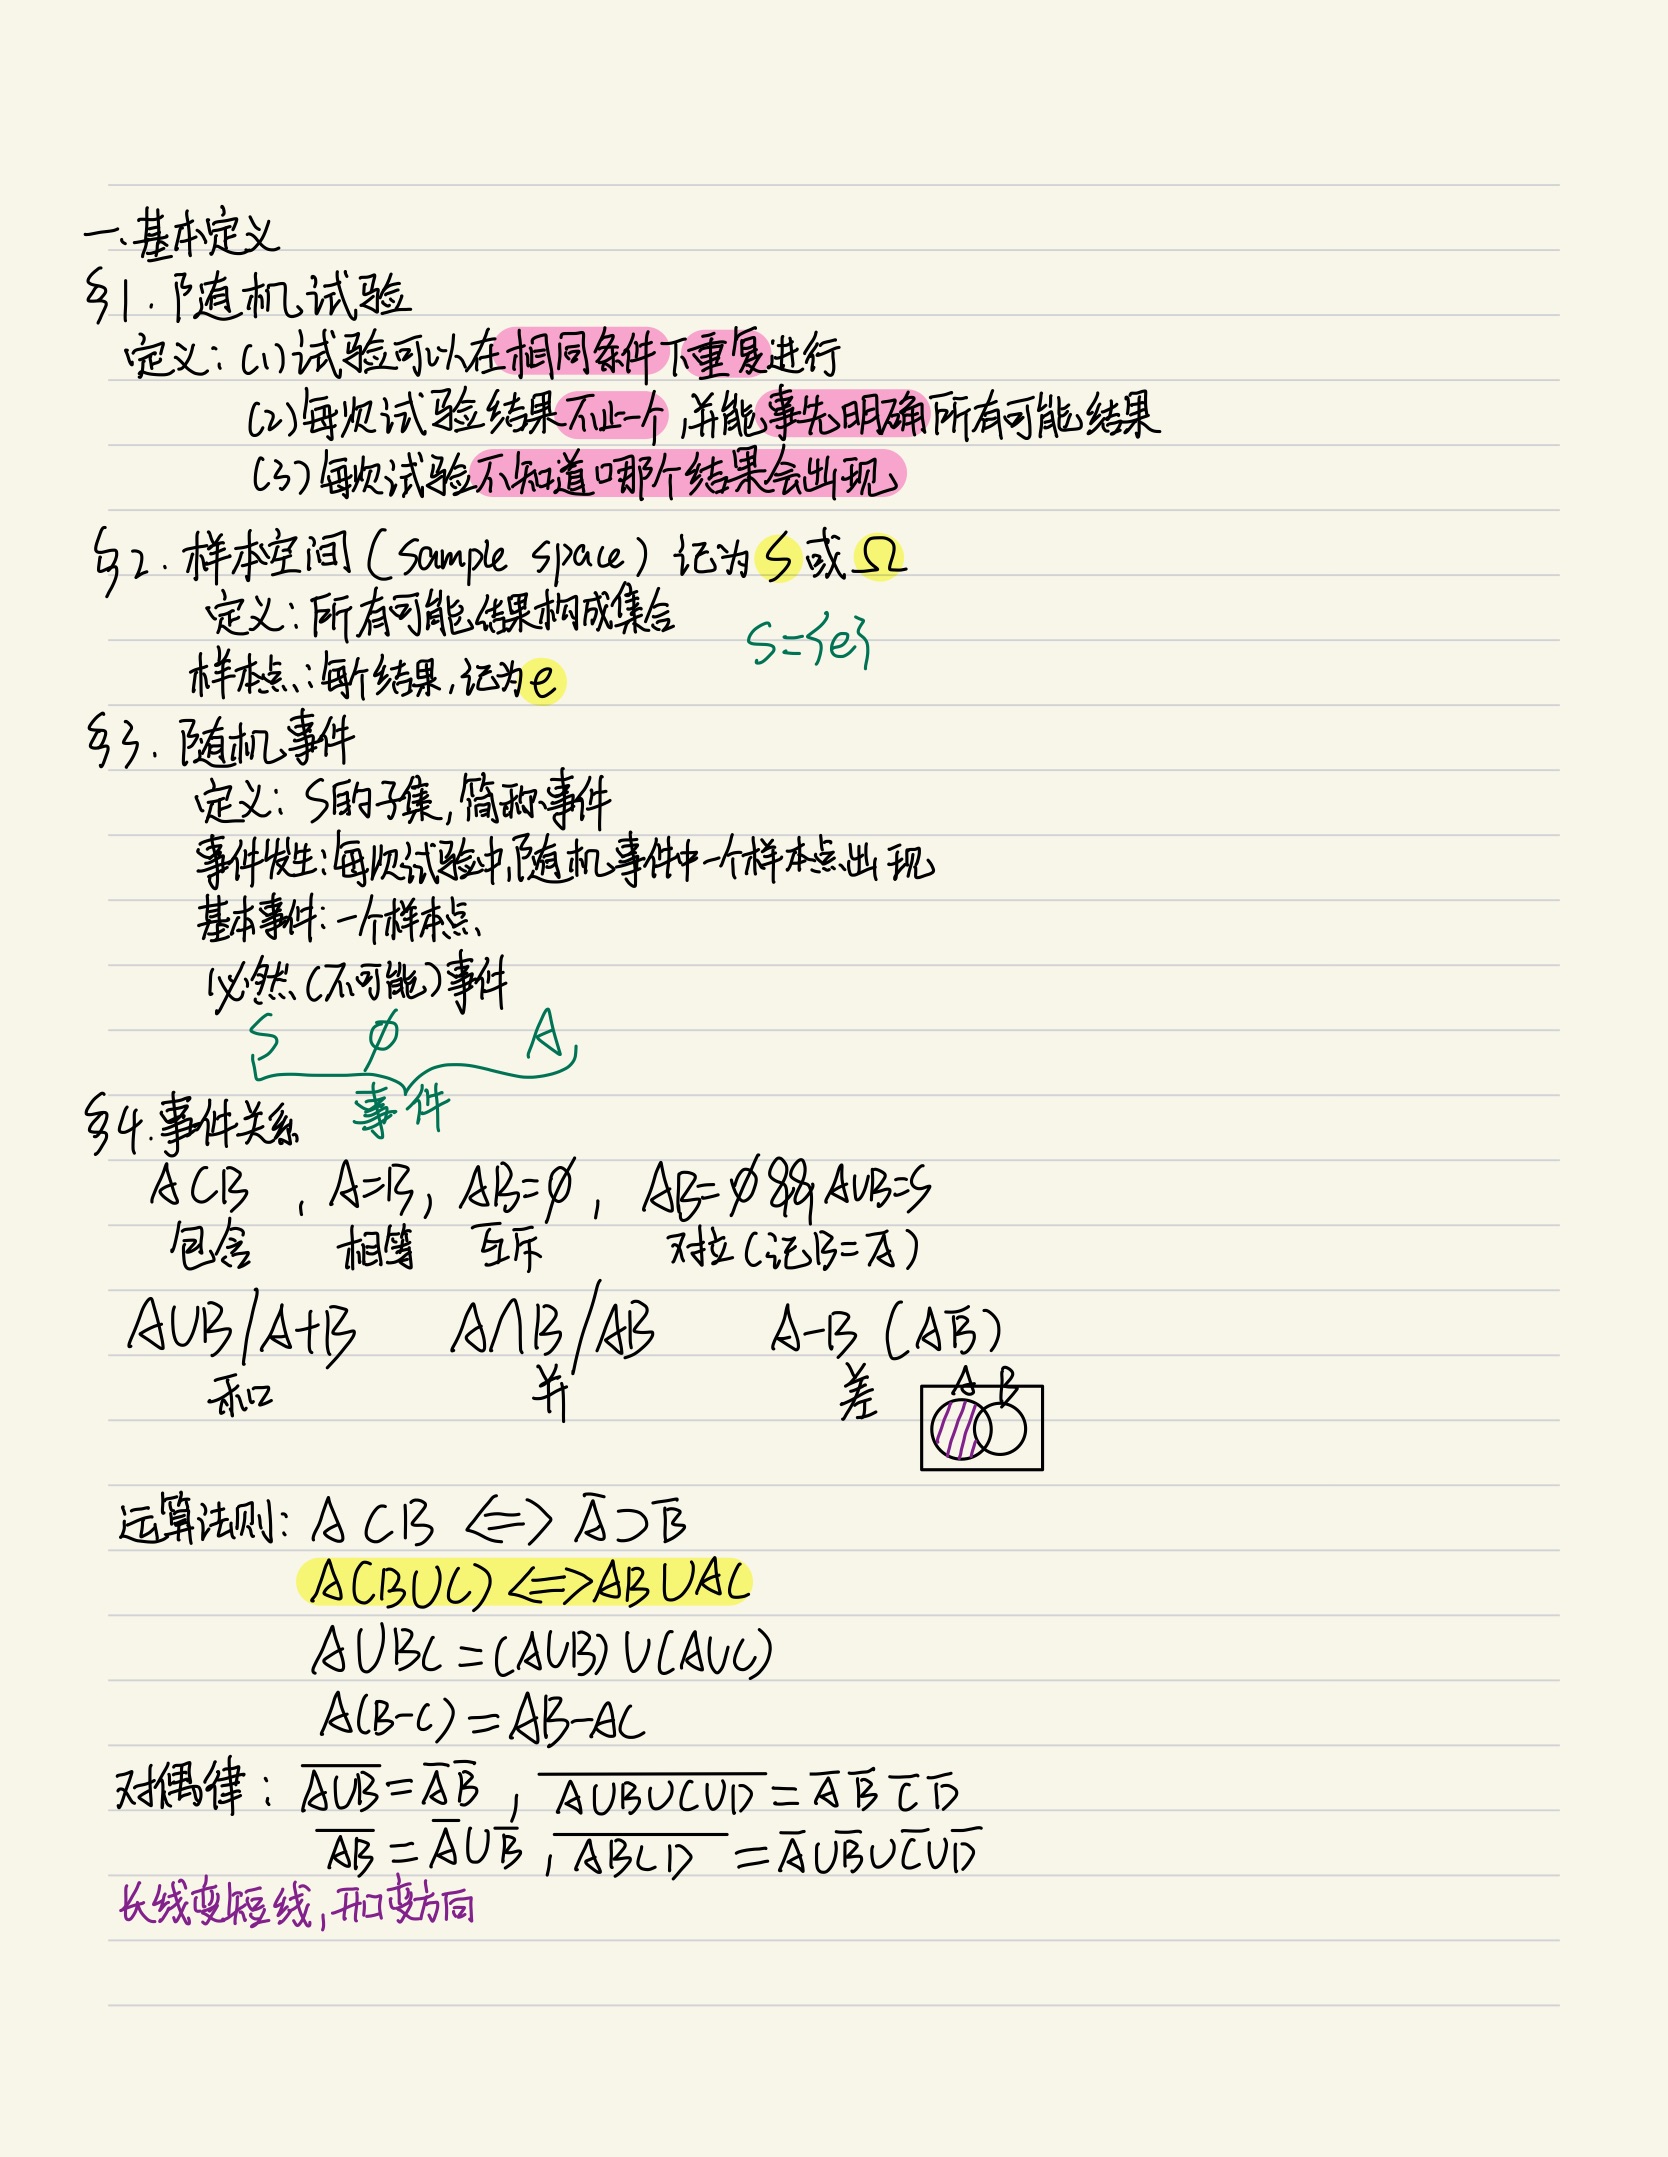 一、基本定义
§1. 随机试验
定义：(1)试验可以在相同条件下重复进行
(2)每次试验结果不止一个,并能事先明确所有可能结果
(3)每次试验不知道哪个结果会出现
§2. 样本空间(sample space) 记为S或Ω
定义：所有可能结果构成集合
S={e}
样本点：每个结果,记为e
§3. 随机事件
定义：S的子集,简称事件
事件发生：每次试验中,随机事件中一个样本点出现
基本事件：一个样本点
必然(不可能)事件
S ∅ A
事件
§4.事件关系
A⊂B , A=B, AB=∅, AB=∅&&A∪B=S
包含 相等 互斥 对立(记B=A̅)
A∪B/A+B A∩B/AB A-B (AB̅)
和 并 差
A B
运算法则: A⊂B <=> A̅⊃B̅
A(B∪C) <=> AB∪AC
A∪BC=(A∪B)∪(A∪C)
A(B-C)=AB-AC
对偶律: A̅∪̅B̅=A̅ B̅ , A̅∪̅B̅∪̅C̅∪̅D̅=A̅ B̅ C̅ D̅
A̅B̅=A̅∪B̅ , A̅B̅C̅D̅=A̅∪B̅∪C̅∪D̅
长线变短线,开口变方向